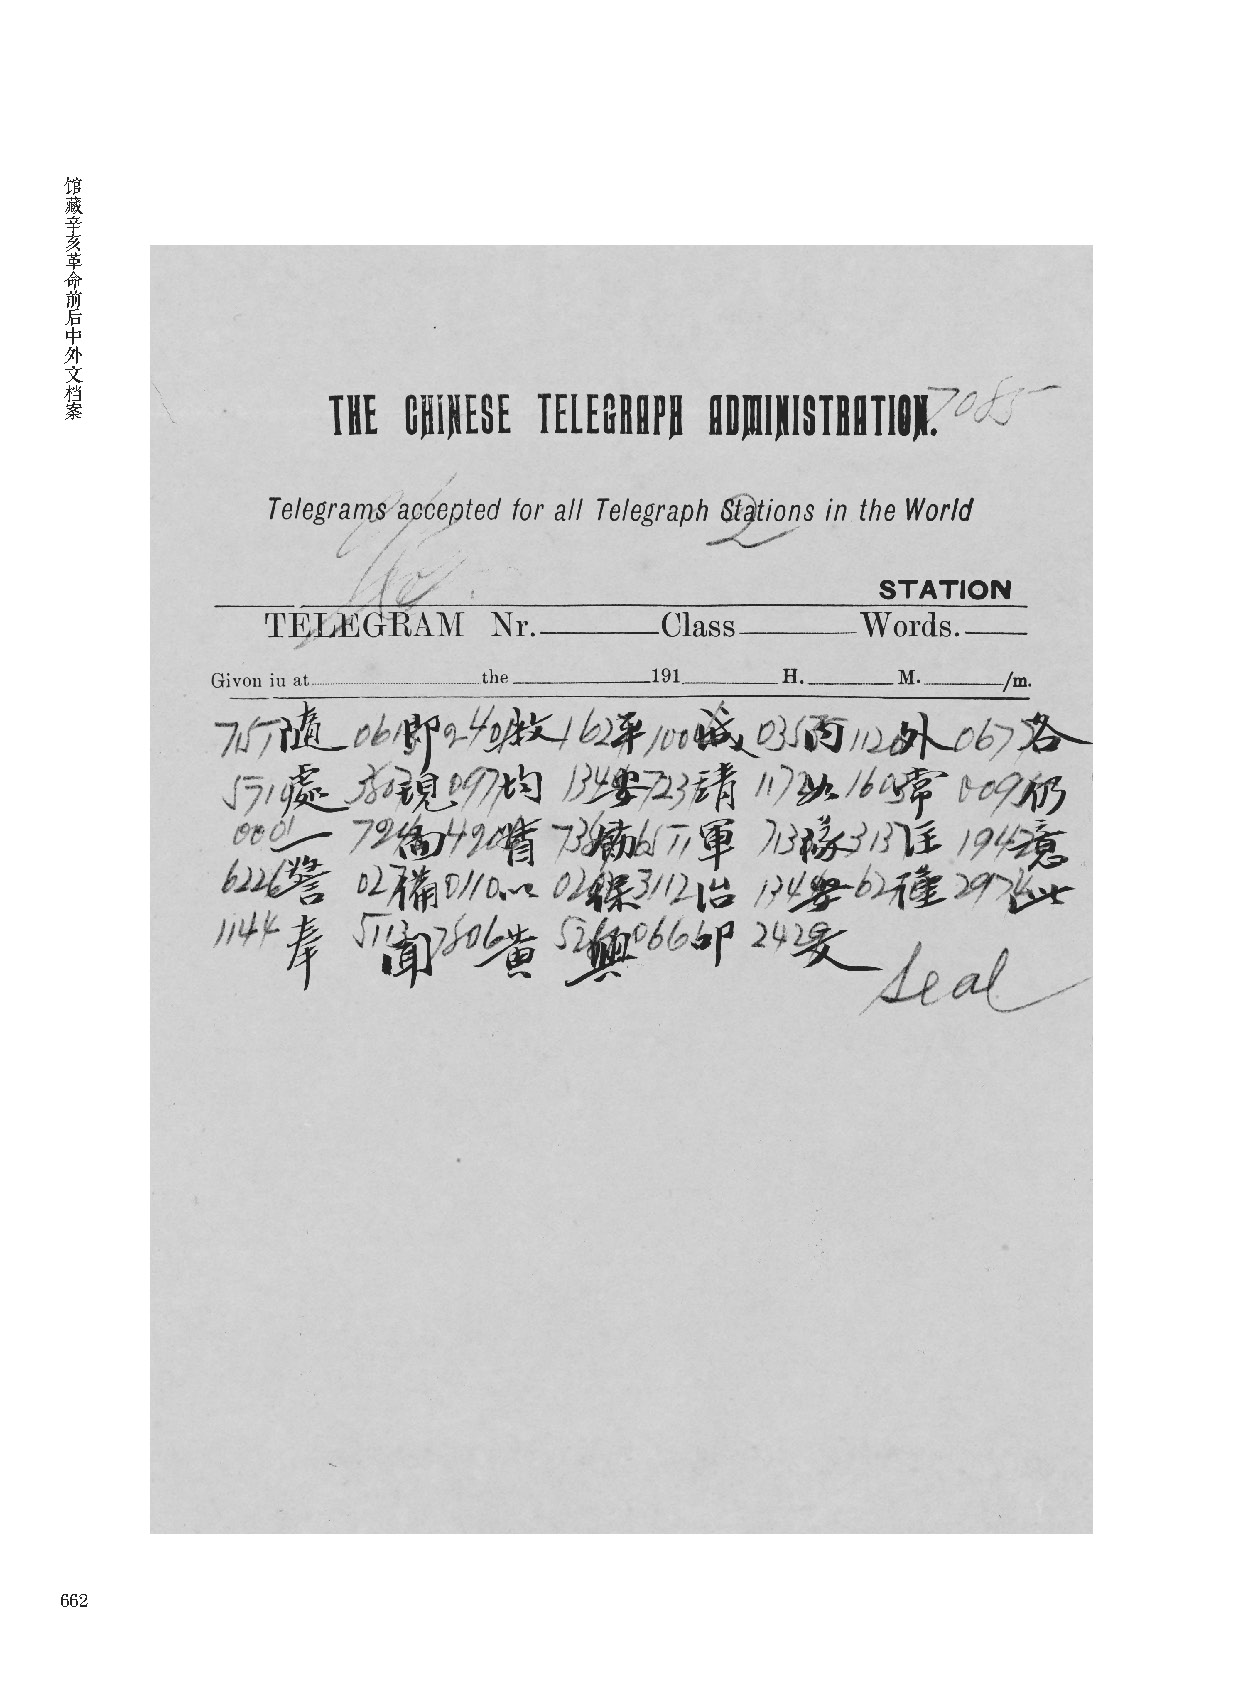 馆藏辛亥革命前后中外文档案
THE CHINESE TELEGRAPH ADMINISTRATION. 7085
Telegrams accepted for all Telegraph Stations in the World
2
STATION
TELEGRAM Nr. Class Words.
Givon iu at the 191 H. M. /m.
7151 隨 0613 即 240 牧 162 平 100 城 0355 内 1120 外 067 各
5710 處 3803 現 0971 均 1344 安 723 靖 1172 如 1603 常 009 仍
0001 一 792 面 4900 督 738 飭 6511 軍 713 隊 3137 注 1942 意
6226 警 027 備 0110 以 02 保 3112 治 1344 安 62 謹 2974 此
1144 奉 5113 聞 7806 黄 526 興 0666 叩 2429
Seal
662